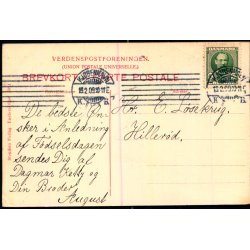 VERDENSPOSTFORENINGEN.
(UNION POSTALE UNIVERSELLE.)
BREVKORT. CARTE POSTALE.
DANMARK
De bedste Øn-
sker i Anledning
af Fødselsdagen
sendes Dig af
Dagmar
Din Broder
August
Hr. E.
Hillerød.